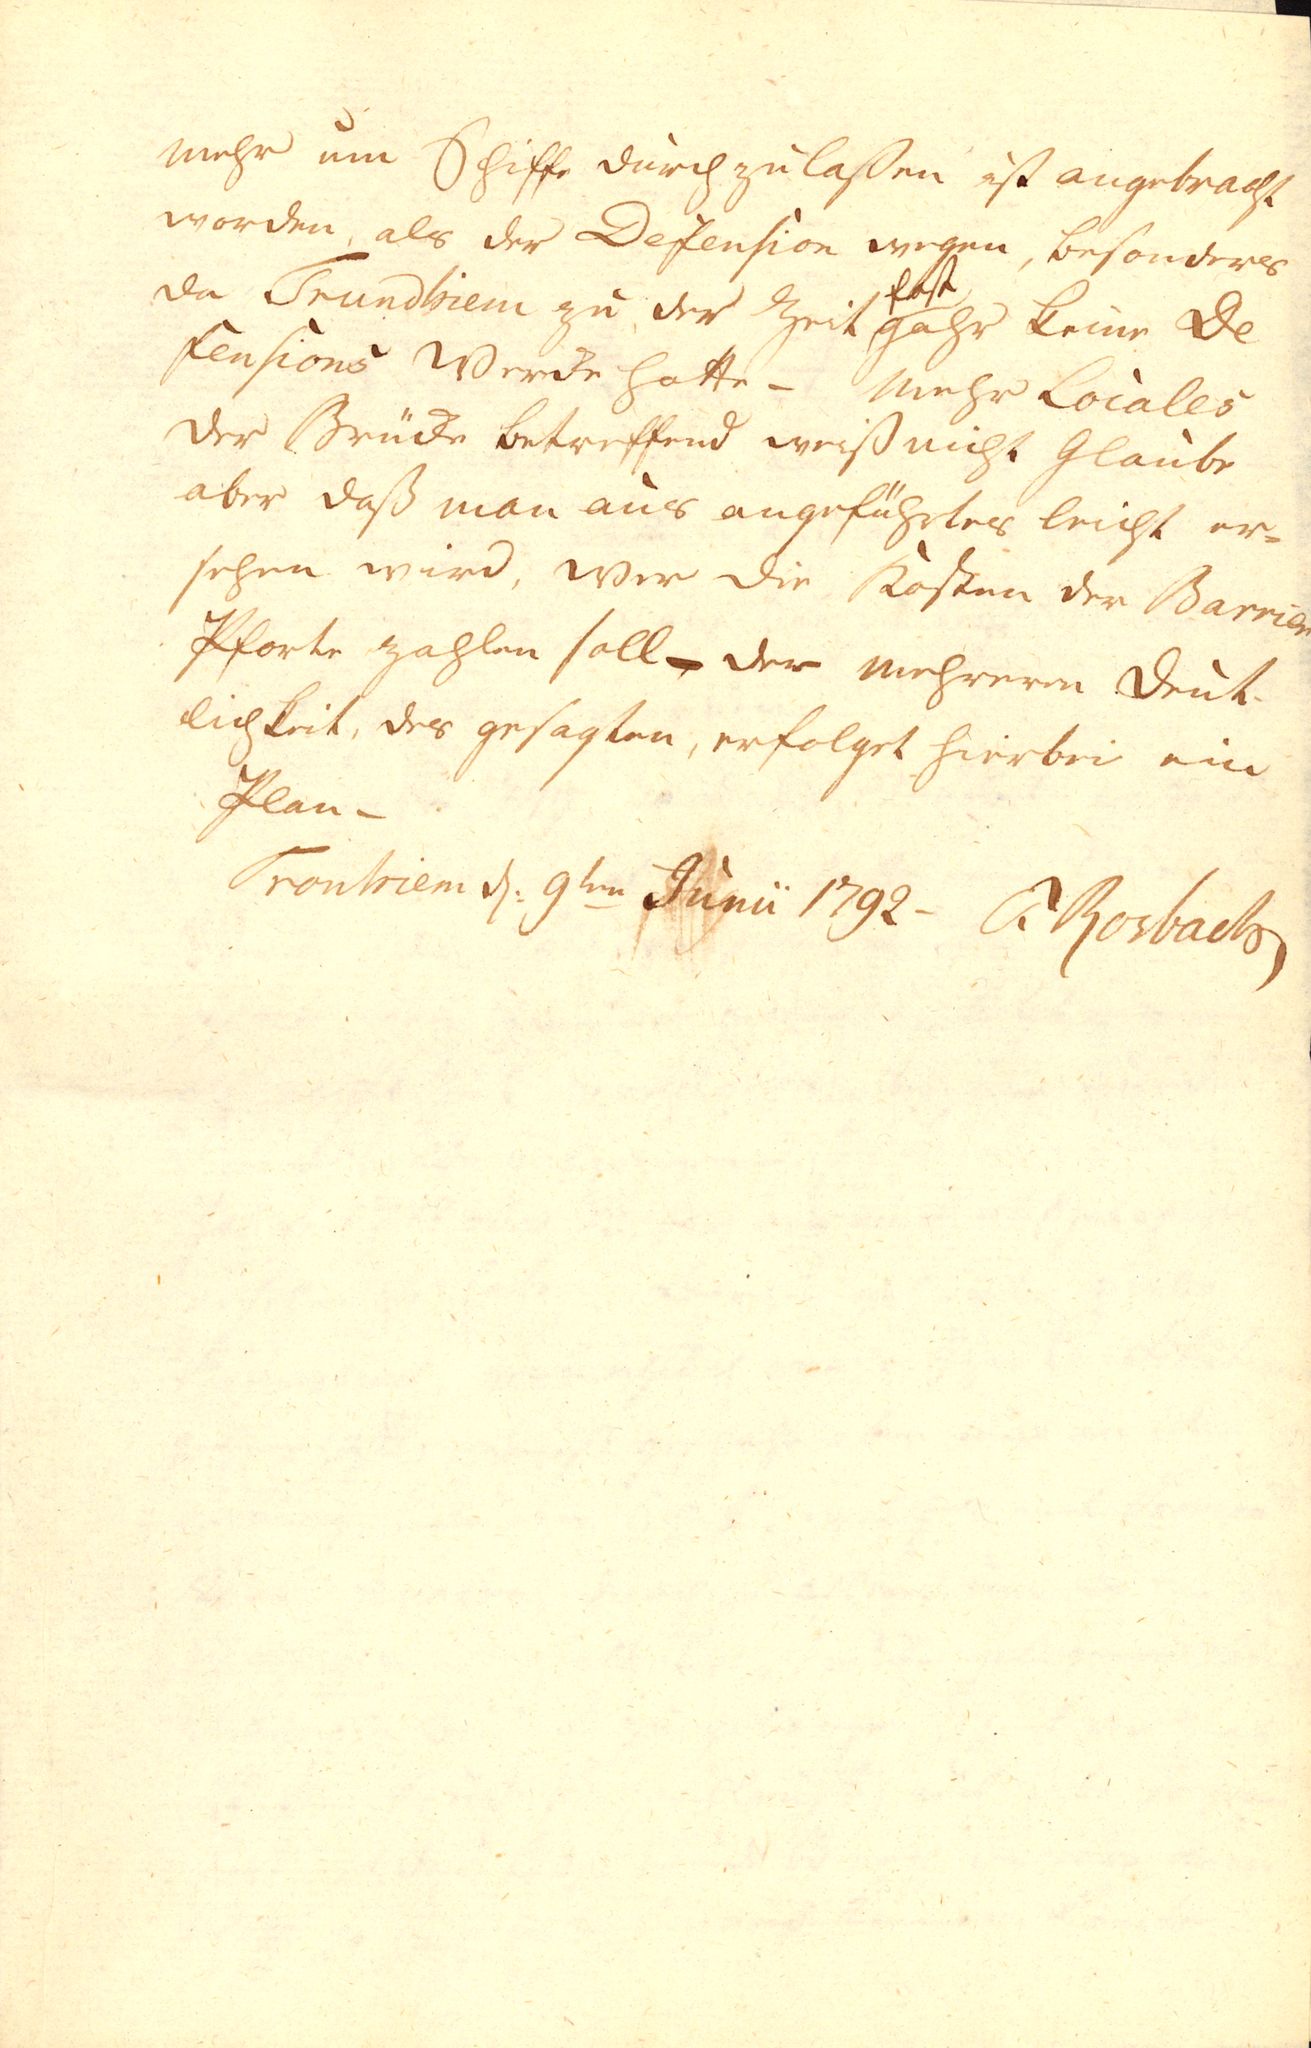 mehr um Schiffe durchzulaßen ist angebracht
worden, als der Defension wegen, besonders
da Trundhiem zu der Zeit fast gahr keine De
fensions Wercke hatte – Mehr Locales
der Brücke betreffend weiß nicht Glaube
aber daß man aus angeführtes leicht er=
sehen wird, wer die Kosten der Barriere
Pforte zahlen soll – der mehreren Deut-
lichkeit, des gesagten, erfolget hierbei ein
Plan –
Tronhiem d: 9ten Junii 1792 – Rosbach